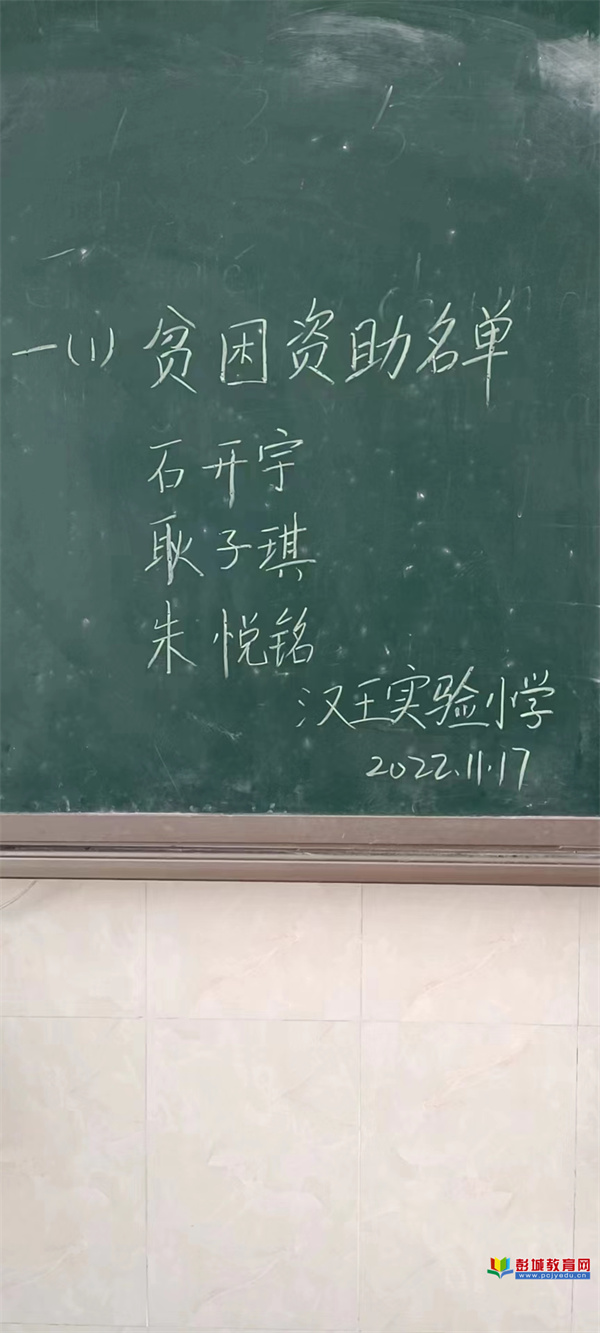 一(1) 贫困资助名单
石开宇
耿子琪
朱悦铭
汉王实验小学
2022.11.17
彭城教育网
www.pcjyedu.cn